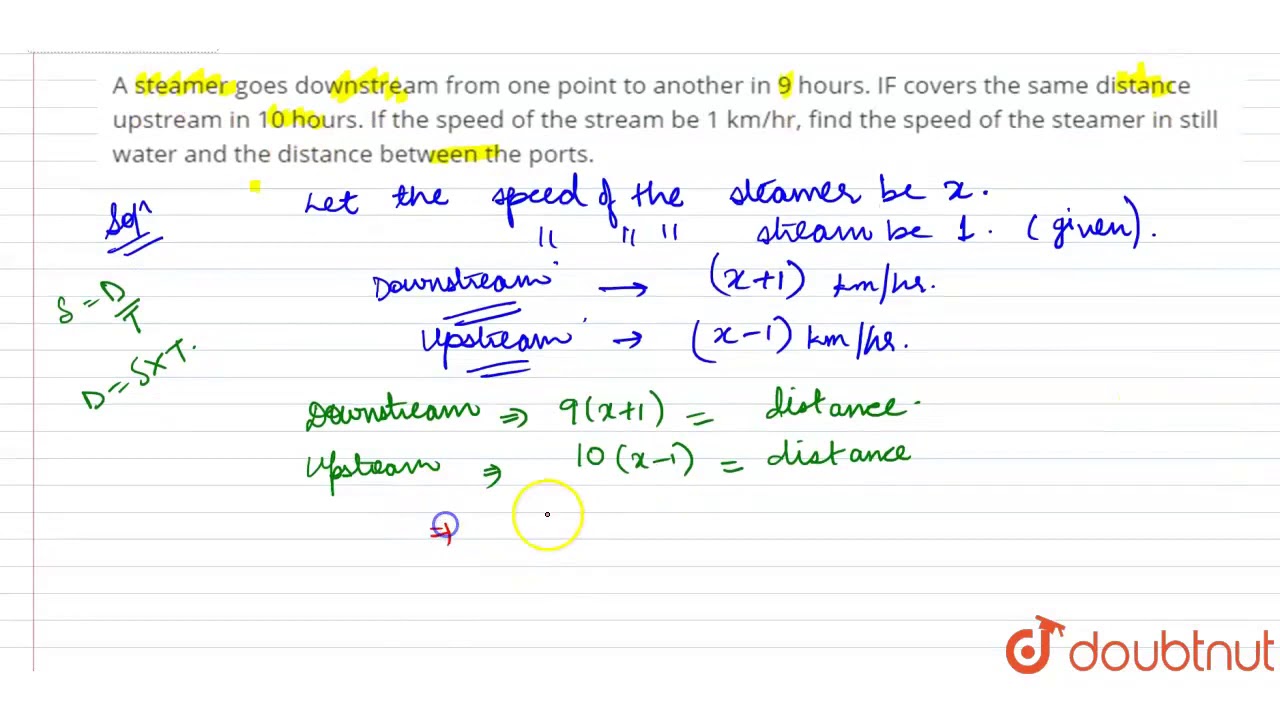 A steamer goes downstream from one point to another in 9 hours. IF covers the same distance
upstream in 10 hours. If the speed of the stream be 1 km/hr, find the speed of the steamer in still
water and the distance between the ports.
Solⁿ
Let the speed of the steamer be x.
" " " stream be 1. (given).
Downstream → (x+1) km/hr.
Upstream → (x-1) km/hr.
S = D/T
D = S×T.
Downstream ⇒ 9(x+1) = distance.
Upstream ⇒ 10(x-1) = distance
⇒
doubtnut